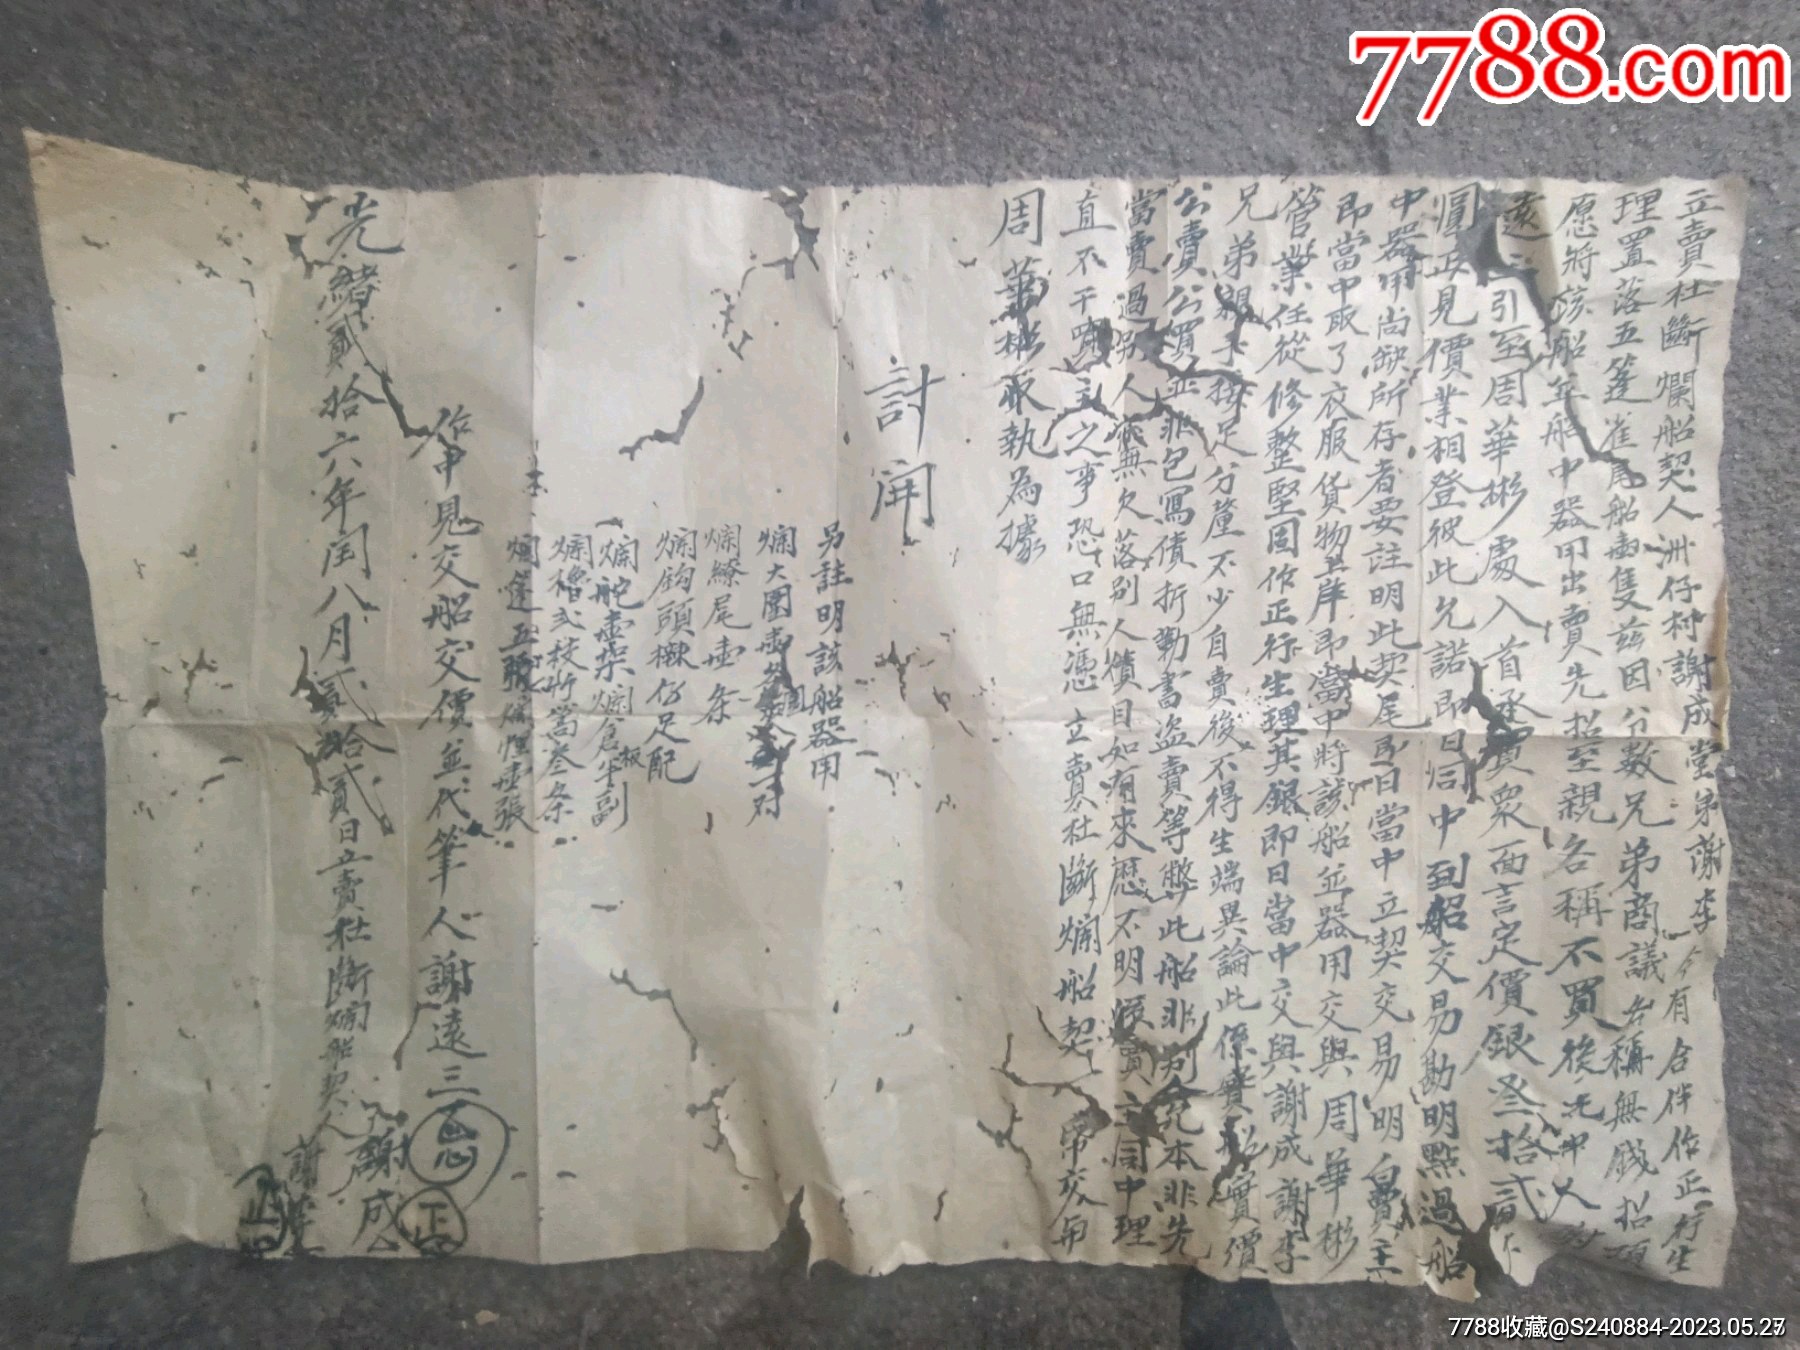 7788.com
立賣杜斷爛船契人洲仔村謝成堂弟謝李今有合伴作正行生
理置落五篷崔尾船壹隻茲因分數兄弟商議各稱無錢招頂
愿將該船并船中器用出賣先招至親各稱不買後托中人謝
遠三引至周華彬處入首承買眾面言定價銀叁拾弍
圓正見價業相登彼此允諾即日同中到船交易勘明點過船
中器用尚缺所存者要註明此契尾即日當中立契交易明白賣主
即當中取了衣服貨物上岸即當中將該船並器用交與周華彬
管業任從修整堅固作正行生理其銀即日當中交與謝成謝李
兄弟親手接足分釐不少自賣後不得生端異論此係實船實價
公賣公買並非包寫債折勒書盜賣等弊此船非別人本非先
當賣過別人亦無欠落別人債目如有來歷不明賣主同中理
直不干買主之事恐口無憑立賣杜斷爛船契一帋交與
周華彬收執為據
計開
另註明該船器用
爛大圍壹
爛繚尾壹条
爛鈎頭楝仔足配
爛舵壹架爛倉板半副
爛櫓弍枝折篙叁条
爛篷五張爛壹張
作中見交船交價並代筆人謝遠三
光緒貳拾六年閏八月貳拾弍日立賣杜斷爛船契人謝成
謝李
7788收藏@S240884-2023.05.27